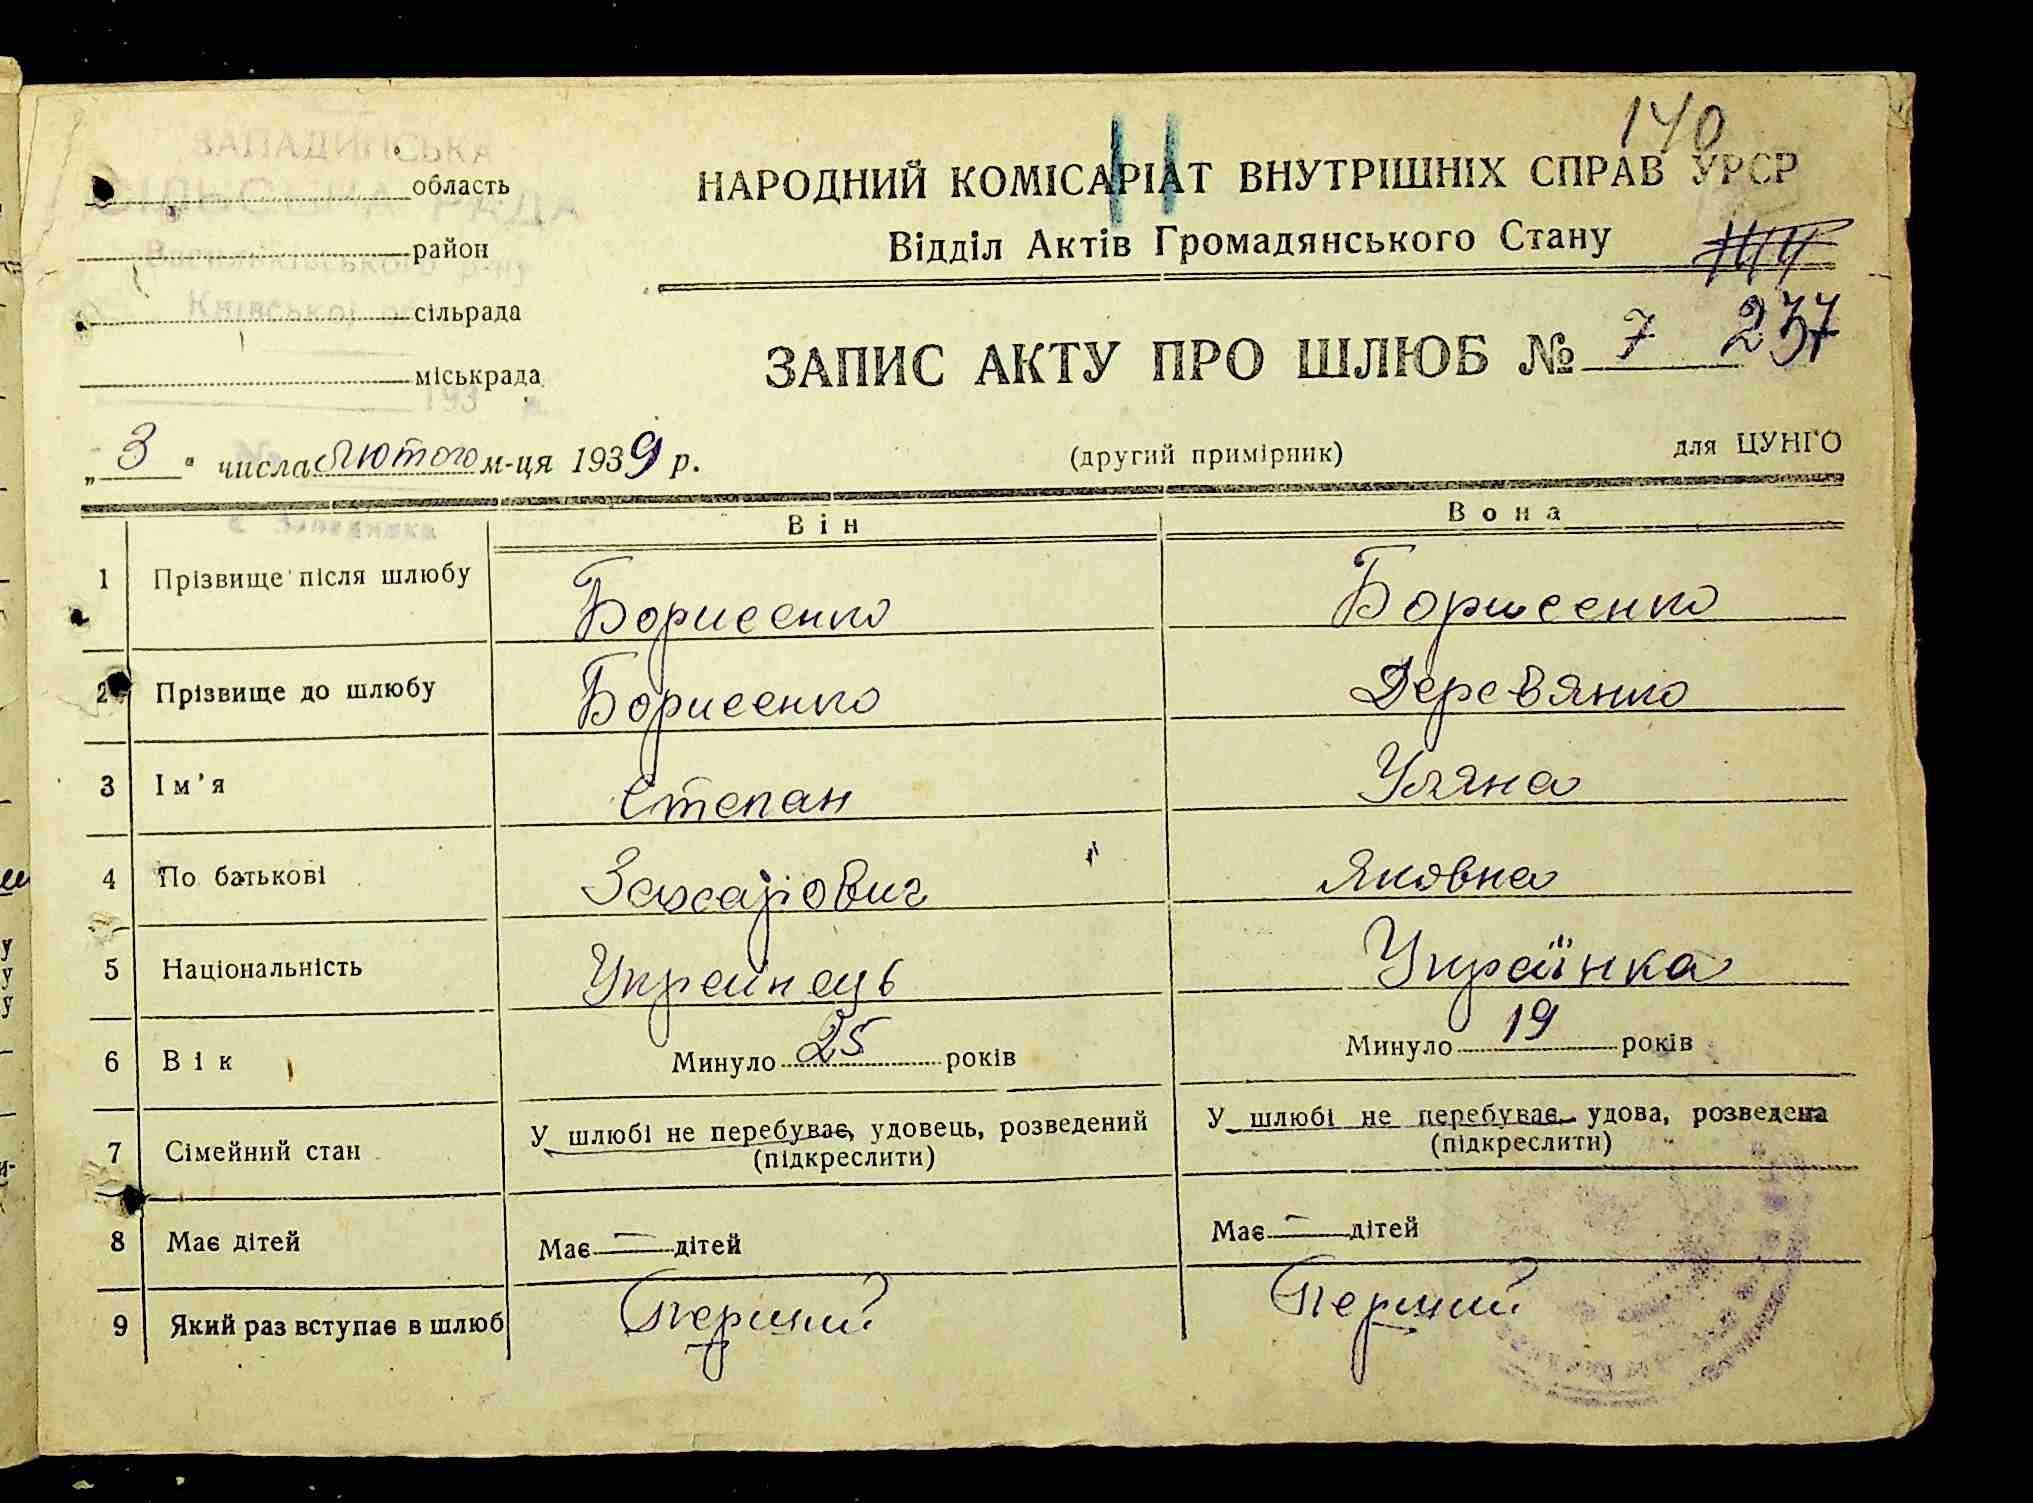 140
ЗАПАДИНСЬКА
СІЛЬСЬКА РАДА
Васильківського р-ну
Київської
область
район
сільрада
міськрада
193
НАРОДНИЙ КОМІСАРІАТ ВНУТРІШНІХ СПРАВ УРСР
Відділ Актів Громадянського Стану
144
ЗАПИС АКТУ ПРО ШЛЮБ № 7 237
„ 3 " числа лютого м-ця 1939 р.
(другий примірник)
для ЦУНГО
Він Вона
1 Прізвище після шлюбу Борисенко Борисенко
2 Прізвище до шлюбу Борисенко Дерев'янко
3 Ім'я Степан Уляна
4 По батькові Захарович Яковна
5 Національність Українець Українка
6 Вік Минуло 25 років Минуло 19 років
7 Сімейний стан У шлюбі не перебуває, удовець, розведений У шлюбі не перебуває, удова, розведена
(підкреслити) (підкреслити)
8 Має дітей Має — дітей Має — дітей
9 Який раз вступає в шлюб Перший Перший